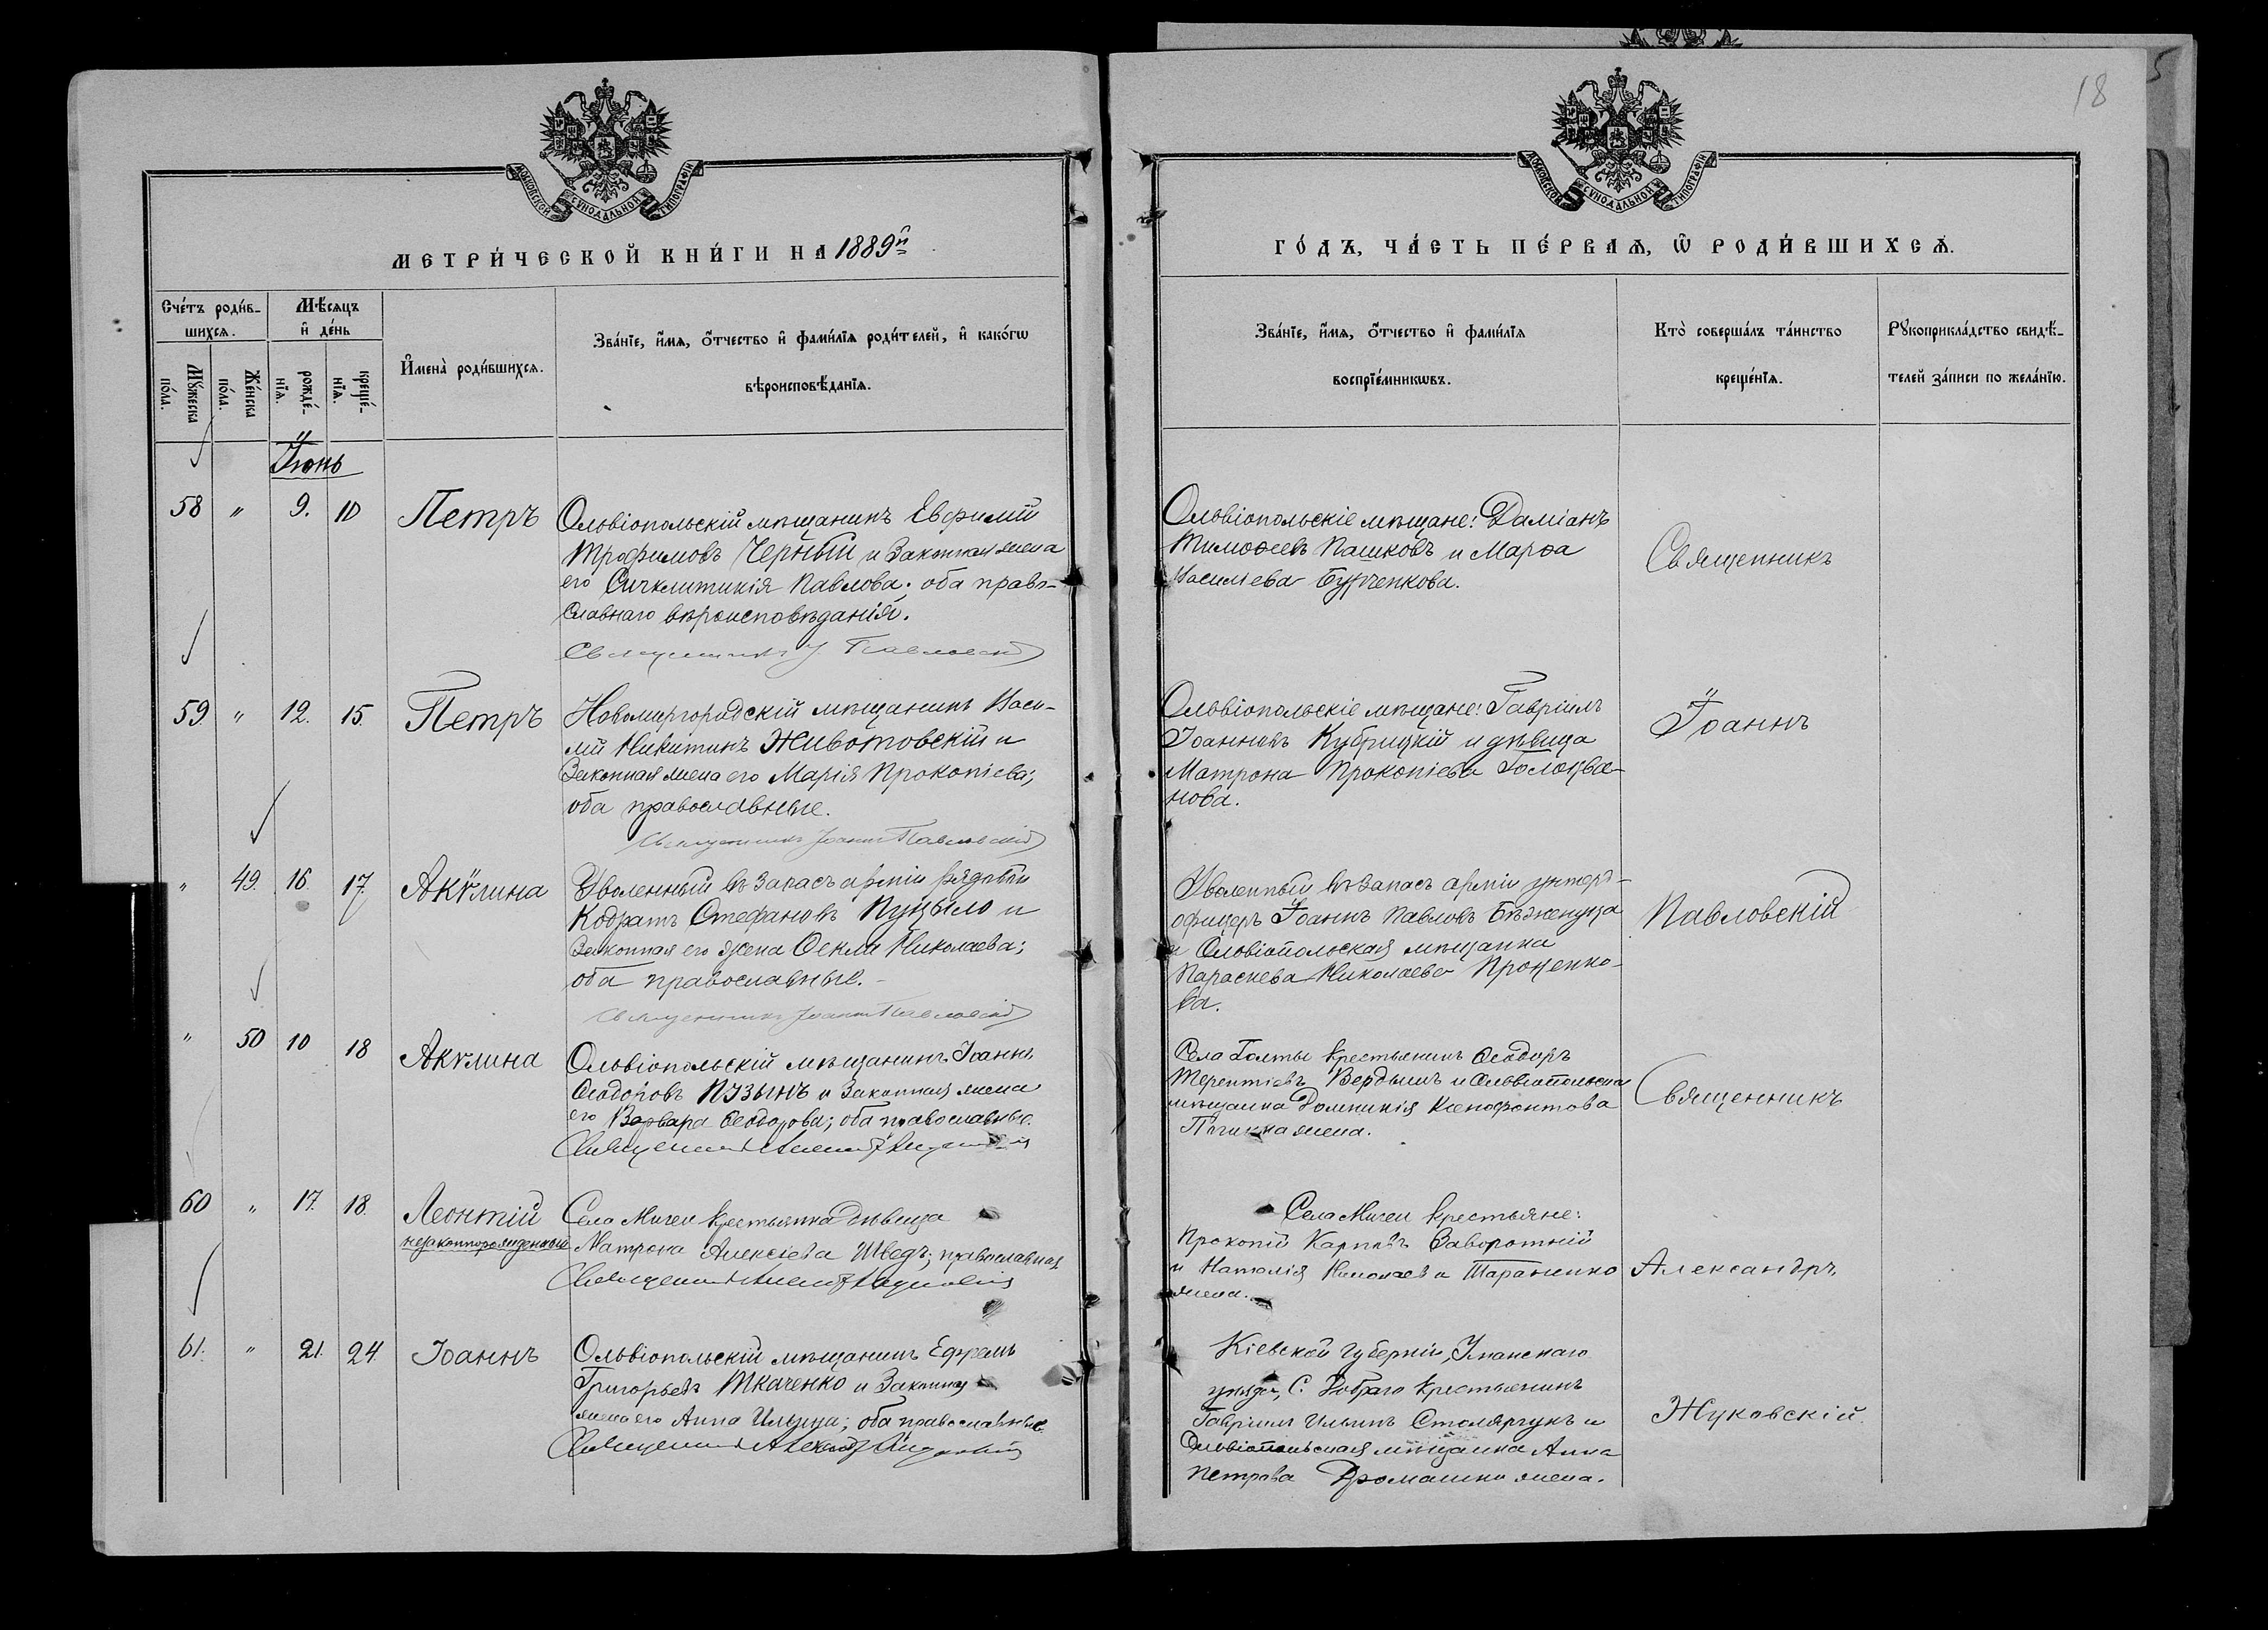 18
МОСКОВСКОЙ СѴНОДАЛЬНОЙ ТИПОГРАФІИ
МОСКОВСКОЙ СѴНОДАЛЬНОЙ ТИПОГРАФІИ
МЕТРИ́ЧЕСКОЙ КНИ́ГИ НА 1889й
ГО́ДЪ, ЧА́СТЬ ПЕ́РВАѦ, Ѿ РОДИ́ВШИХСѦ.
Счéтъ роди́в-
шихсѧ.
Мѣ́сѧцъ
и҆ де́нь
Мꙋ́жеска
по́ла.
Же́нска
по́ла.
рожде́-
нїѧ.
креще́-
нїѧ.
И҆мена̀ роди́вшихсѧ.
Зва́нїе, и҆́мѧ, ѻ҆́тчество и҆ фами́лїѧ роди́телей, и҆ како́гѡ
вѣроисповѣ́данїѧ.
Зва́нїе, и҆́мѧ, ѻ҆́тчество и҆ фами́лїѧ
воспрїе́мникѡвъ.
Кто̀ соверша́лъ та́инство
креще́нїѧ.
Рꙋкоприкла́дство свидѣ́-
телей за́писи по жела́нїю.
Іюнь
58 " 9. 10 Петръ
Ольвіопольскій мѣщанинъ Евфимій
Трофимовъ Черный и законная жена
его Сигклитикія Павлова; оба право-
славнаго вѣроисповѣданія.
Священникъ І. Павловскій
Ольвіопольскіе мѣщане: Даміанъ
Тимоѳеевъ Пашковъ и Марѳа
Васильева Бурченкова.
Священникъ
59 " 12. 15. Петръ
Новомиргородскій мѣщанинъ Васи-
лій Никитинъ Животовскій и
законная жена его Марія Прокопіева;
оба православные.
Священникъ Іоаннъ Павловскій
Ольвіопольскіе мѣщане: Гавріилъ
Іоанновъ Кубрицкій и дѣвица
Матрона Прокопіева Голоцва-
нова.
Іоаннъ
" 49. 16. 17. Акѵлина
Уволенный въ запасъ арміи рядовый
Кодратъ Стефановъ Пузыло и
законная его жена Ѳекла Николаева;
оба православные.
Священникъ Іоаннъ Павловскій
Уволенный въ запасъ арміи унтеръ-
офицеръ Іоаннъ Павловъ Бѣженуца
и Ольвіопольская мѣщанка
Параскева Николаева Проценко-
ва.
Павловскій
" 50 10 18 Акѵлина
Ольвіопольскій мѣщанинъ Іоаннъ
Ѳеодоровъ Пузынъ и законная жена
его Варвара Ѳеодорова; оба православные.
Священникъ
Села Голты крестьянинъ Ѳеодоръ
Терентіевъ Вердышъ и Ольвіопольская
мѣщанка Домникія Ксенофонтова
жена.
Священникъ
60 " 17. 18. Леонтій
незаконнорожденный
Села Мигеи крестьянка дѣвица
Матрона Алексіева Шведъ; православная
Священникъ
Села Мигеи крестьяне:
Прокопій Карповъ Заворотній
и Наталія Николаева Тараненко
жена.
Александръ
61. " 21. 24. Іоаннъ
Ольвіопольскій мѣщанинъ Ефремъ
Григорьевъ Ткаченко и законная
жена его Анна Ильина; оба православные.
Священникъ
Кіевской губерніи, Уманскаго
уѣзда, с. Добраго крестьянинъ
Гавріилъ Ильинъ Столярчукъ и
Ольвіопольская мѣщанка Анна
Петрова жена.
Жуковскій.